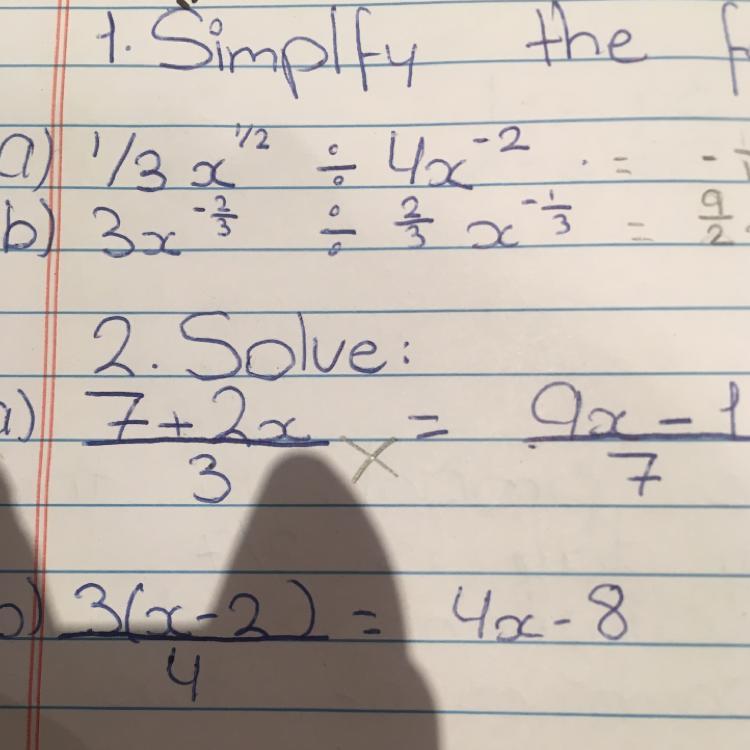 1. Simplfy the f
a) 1/3 x^1/2 ÷ 4x^-2 . = -
b) 3x^-2/3 ÷ 2/3 x^-1/3 = 9/2
2. Solve:
a) 7+2x/3 = 9x-1/7
b) 3(x-2)/4 = 4x-8